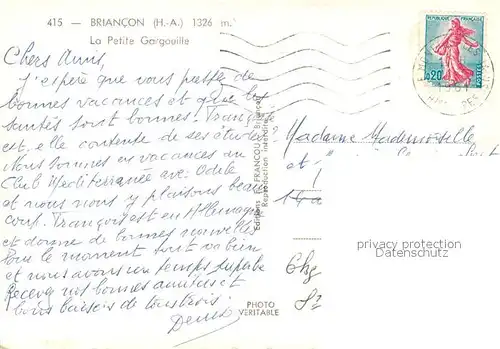 415 — BRIANÇON (H.-A.) 1326 m.
La Petite Gargouille
Chers Amis,
J'espère que vous passez de
bonnes vacances et que les
santés sont bonnes! Françoise
est-elle contente de ses études?
Nous sommes en vacances au
Club Méditerranée avec Odile
et nous nous y plaisons beau
coup. François est en Allemagne
et donne de bonnes nouvelles
Pour le moment tout va bien
et nous avons un temps superbe
Recevez nos bonnes amitiés et
bons baisers de tous trois.
Denis
Editions FRANCOU
Reproduction interdite
PHOTO
VERITABLE
REPUBLIQUE FRANÇAISE
0,20
POSTES
Madame Mademoiselle
et
privacy protection
Datenschutz